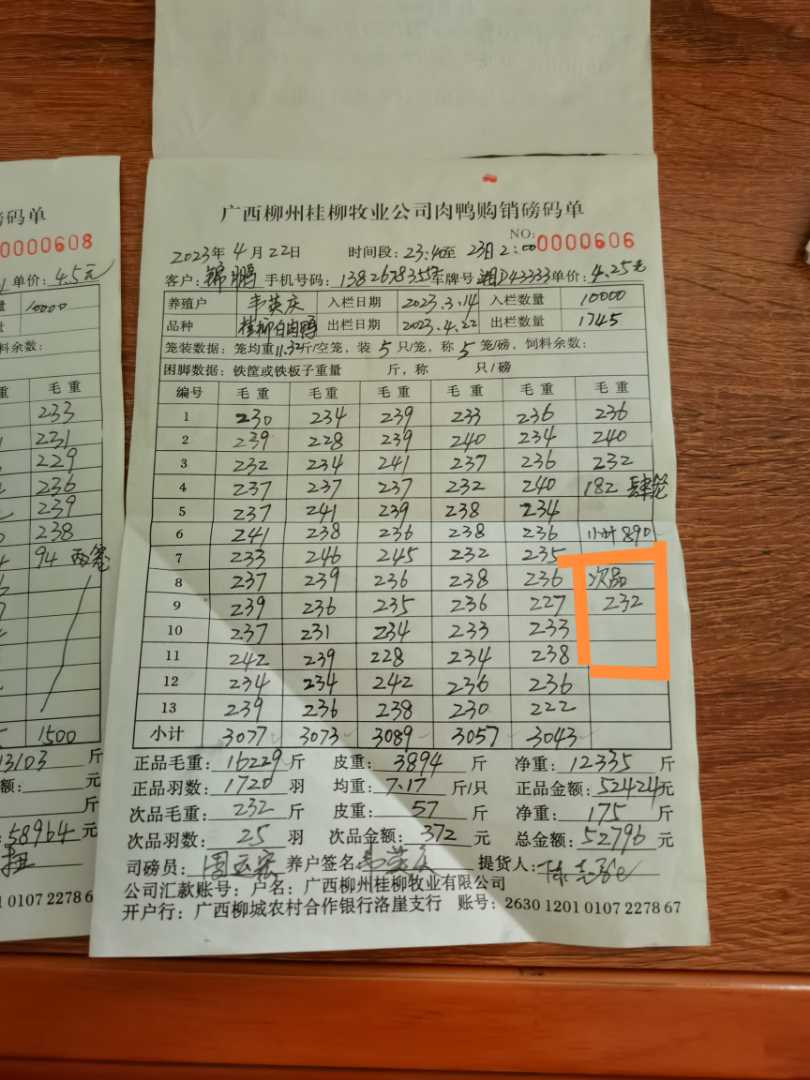 磅码单
0000608
单价:4.5元
10000
料余数:
毛重
233
221
229
236
239
238
94 两笼
1500
13103 斤
额: 元
斤
58964 元
01 0107 2278 6
广西柳州桂柳牧业公司肉鸭购销磅码单
NO: 0000606
2023年4月22日 时间段:23:40至23日2:00
客户:锦鹏 手机号码:1382678355 车牌号:湘D43333 单价:4.25元
养殖户 韦英庆 入栏日期 2023.3.14 入栏数量 10000
品种 桂柳白肉鸭 出栏日期 2023.4.22 出栏数量 1745
笼装数据:笼均重11.32斤/空笼,装5只/笼,称5笼/磅,饲料余数:
困脚数据:铁筐或铁板子重量 斤,称 只/磅
编号 毛重 毛重 毛重 毛重 毛重 毛重
1 230 234 239 233 236 236
2 239 228 239 240 234 240
3 232 234 241 237 236 232
4 237 237 237 232 240 182 肆笼
5 237 241 239 238 234
6 241 238 236 238 236 小计890
7 233 246 245 232 235
8 237 239 236 238 236 次品
9 239 236 235 236 227 232
10 237 231 234 233 233
11 242 239 228 234 238
12 234 234 242 236 236
13 239 236 238 230 222
小计 3077 3073 3089 3057 3043
正品毛重:16229斤 皮重:3894斤 净重:12335斤
正品羽数:1720羽 均重:7.17斤/只 正品金额:52424元
次品毛重:232斤 皮重:57斤 净重:175斤
次品羽数:25羽 次品金额:372元 总金额:52796元
司磅员: 养户签名:韦英庆 提货人:
公司汇款账号:户名:广西柳州桂柳牧业有限公司
开户行:广西柳城农村合作银行洛崖支行 账号:2630 1201 0107 2278 67